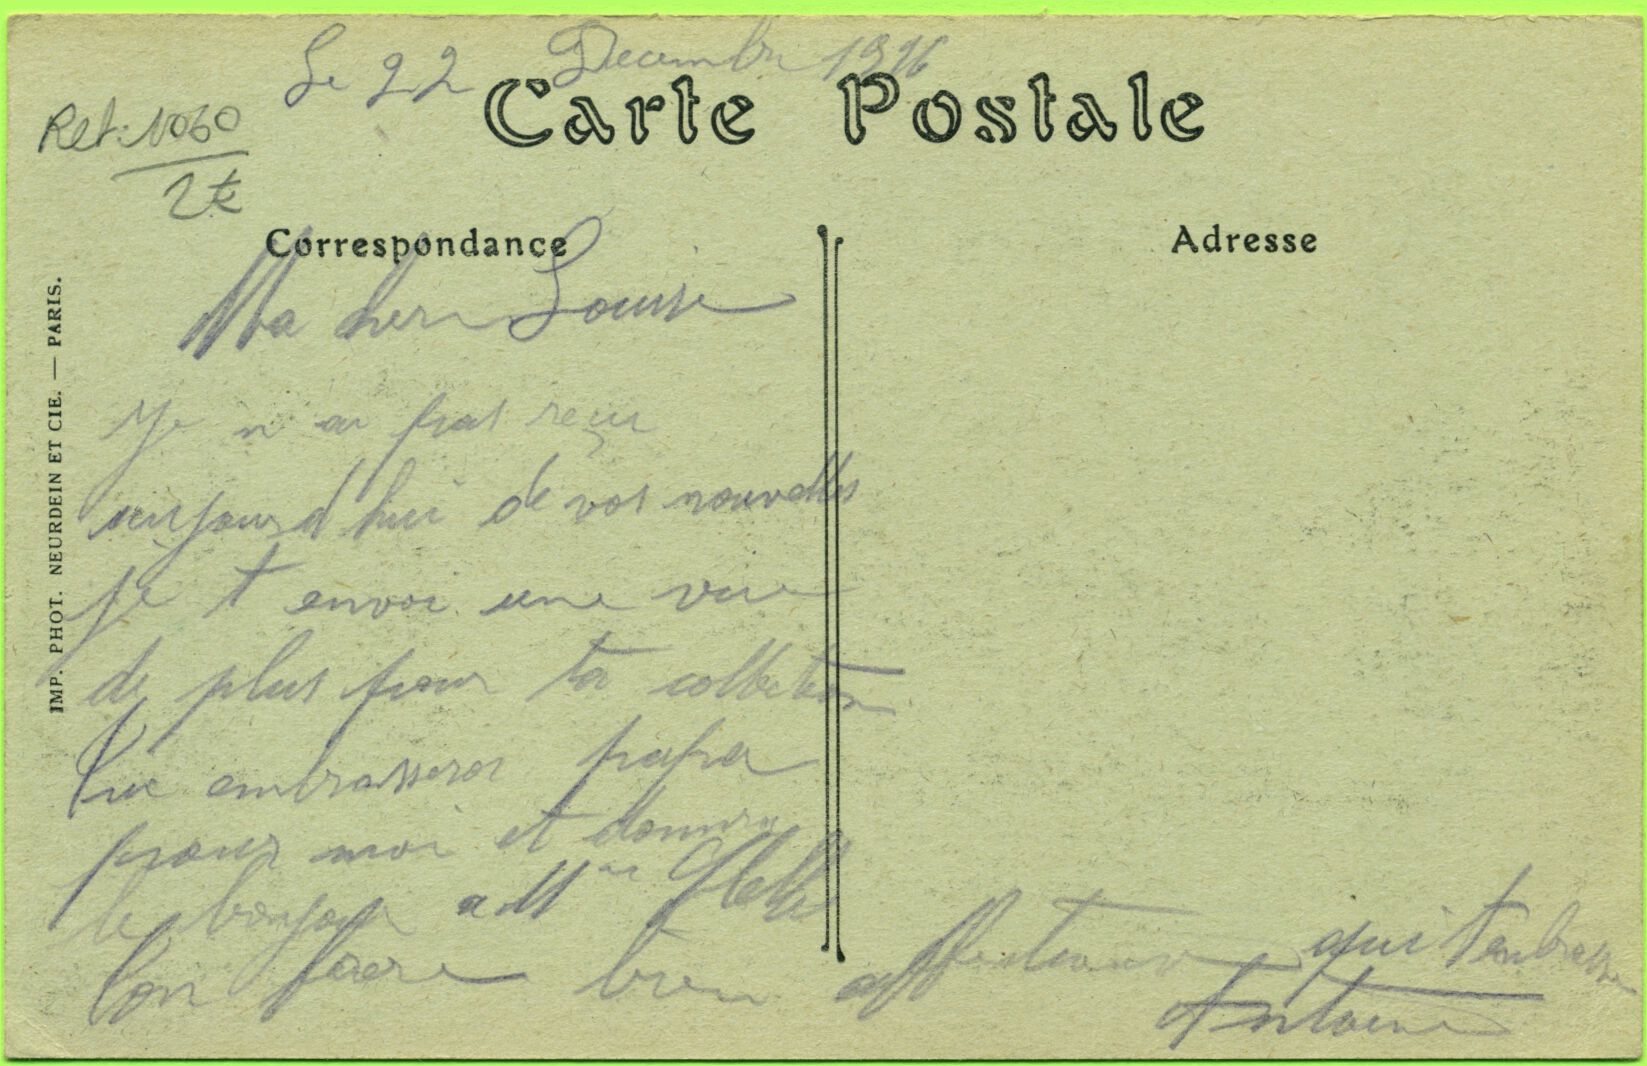 Le 22 Decembre 1916
Carte Postale
Ref: 1060
2€
Correspondance
Adresse
Ma chere Louise
Je n ai pas reçu
aujourd hui de vos nouvelles
je t envoi une vue
de plus pour ta collection
Tu embrasseras papa
pour moi et donnera
le bonjour a Mme
Ton frere bien affectueux qui t embrasse
Antoine
IMP. PHOT. NEURDEIN ET CIE. — PARIS.